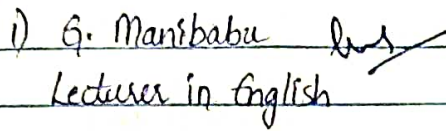 1) G. Manibabu
Lecturer in English